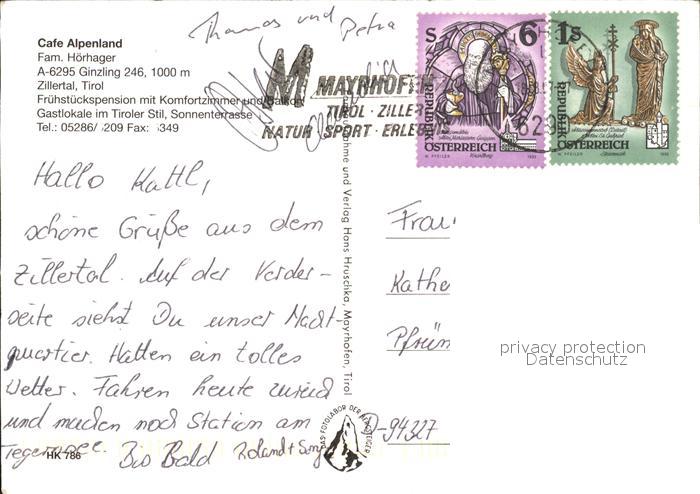 Thomas und
Petra
Cafe Alpenland
Fam. Hörhager
A-6295 Ginzling 246, 1000 m
Zillertal, Tirol
Frühstückspension mit Komfortzimmer und Balkon
Gastlokale im Tiroler Stil, Sonnenterrasse
Tel.: 05286/ 209 Fax: 349
M MAYRHOFEN
TIROL · ZILLER
NATUR · SPORT · ERLEB
S 6
REPUBLIK
ÖSTERREICH
W. PFEILER 1993
1S
REPUBLIK
ÖSTERREICH
W. PFEILER 1993
Hallo Kattl,
schöne Grüße aus dem
Zillertal. Auf der Vorder-
seite siehst Du unser Nacht-
quartier. Hatten ein tolles
Wetter. Fahren heute zurück
und machen noch Station am
Tegernsee. Bis Bald Roland +
HK 786
und Verlag Hans Hruschka, Mayrhofen, Tirol
DAS FOTOLABOR DER BERGSTEIGER
Frau
Kathe
Pfrün
D-94327
privacy protection
Datenschutz